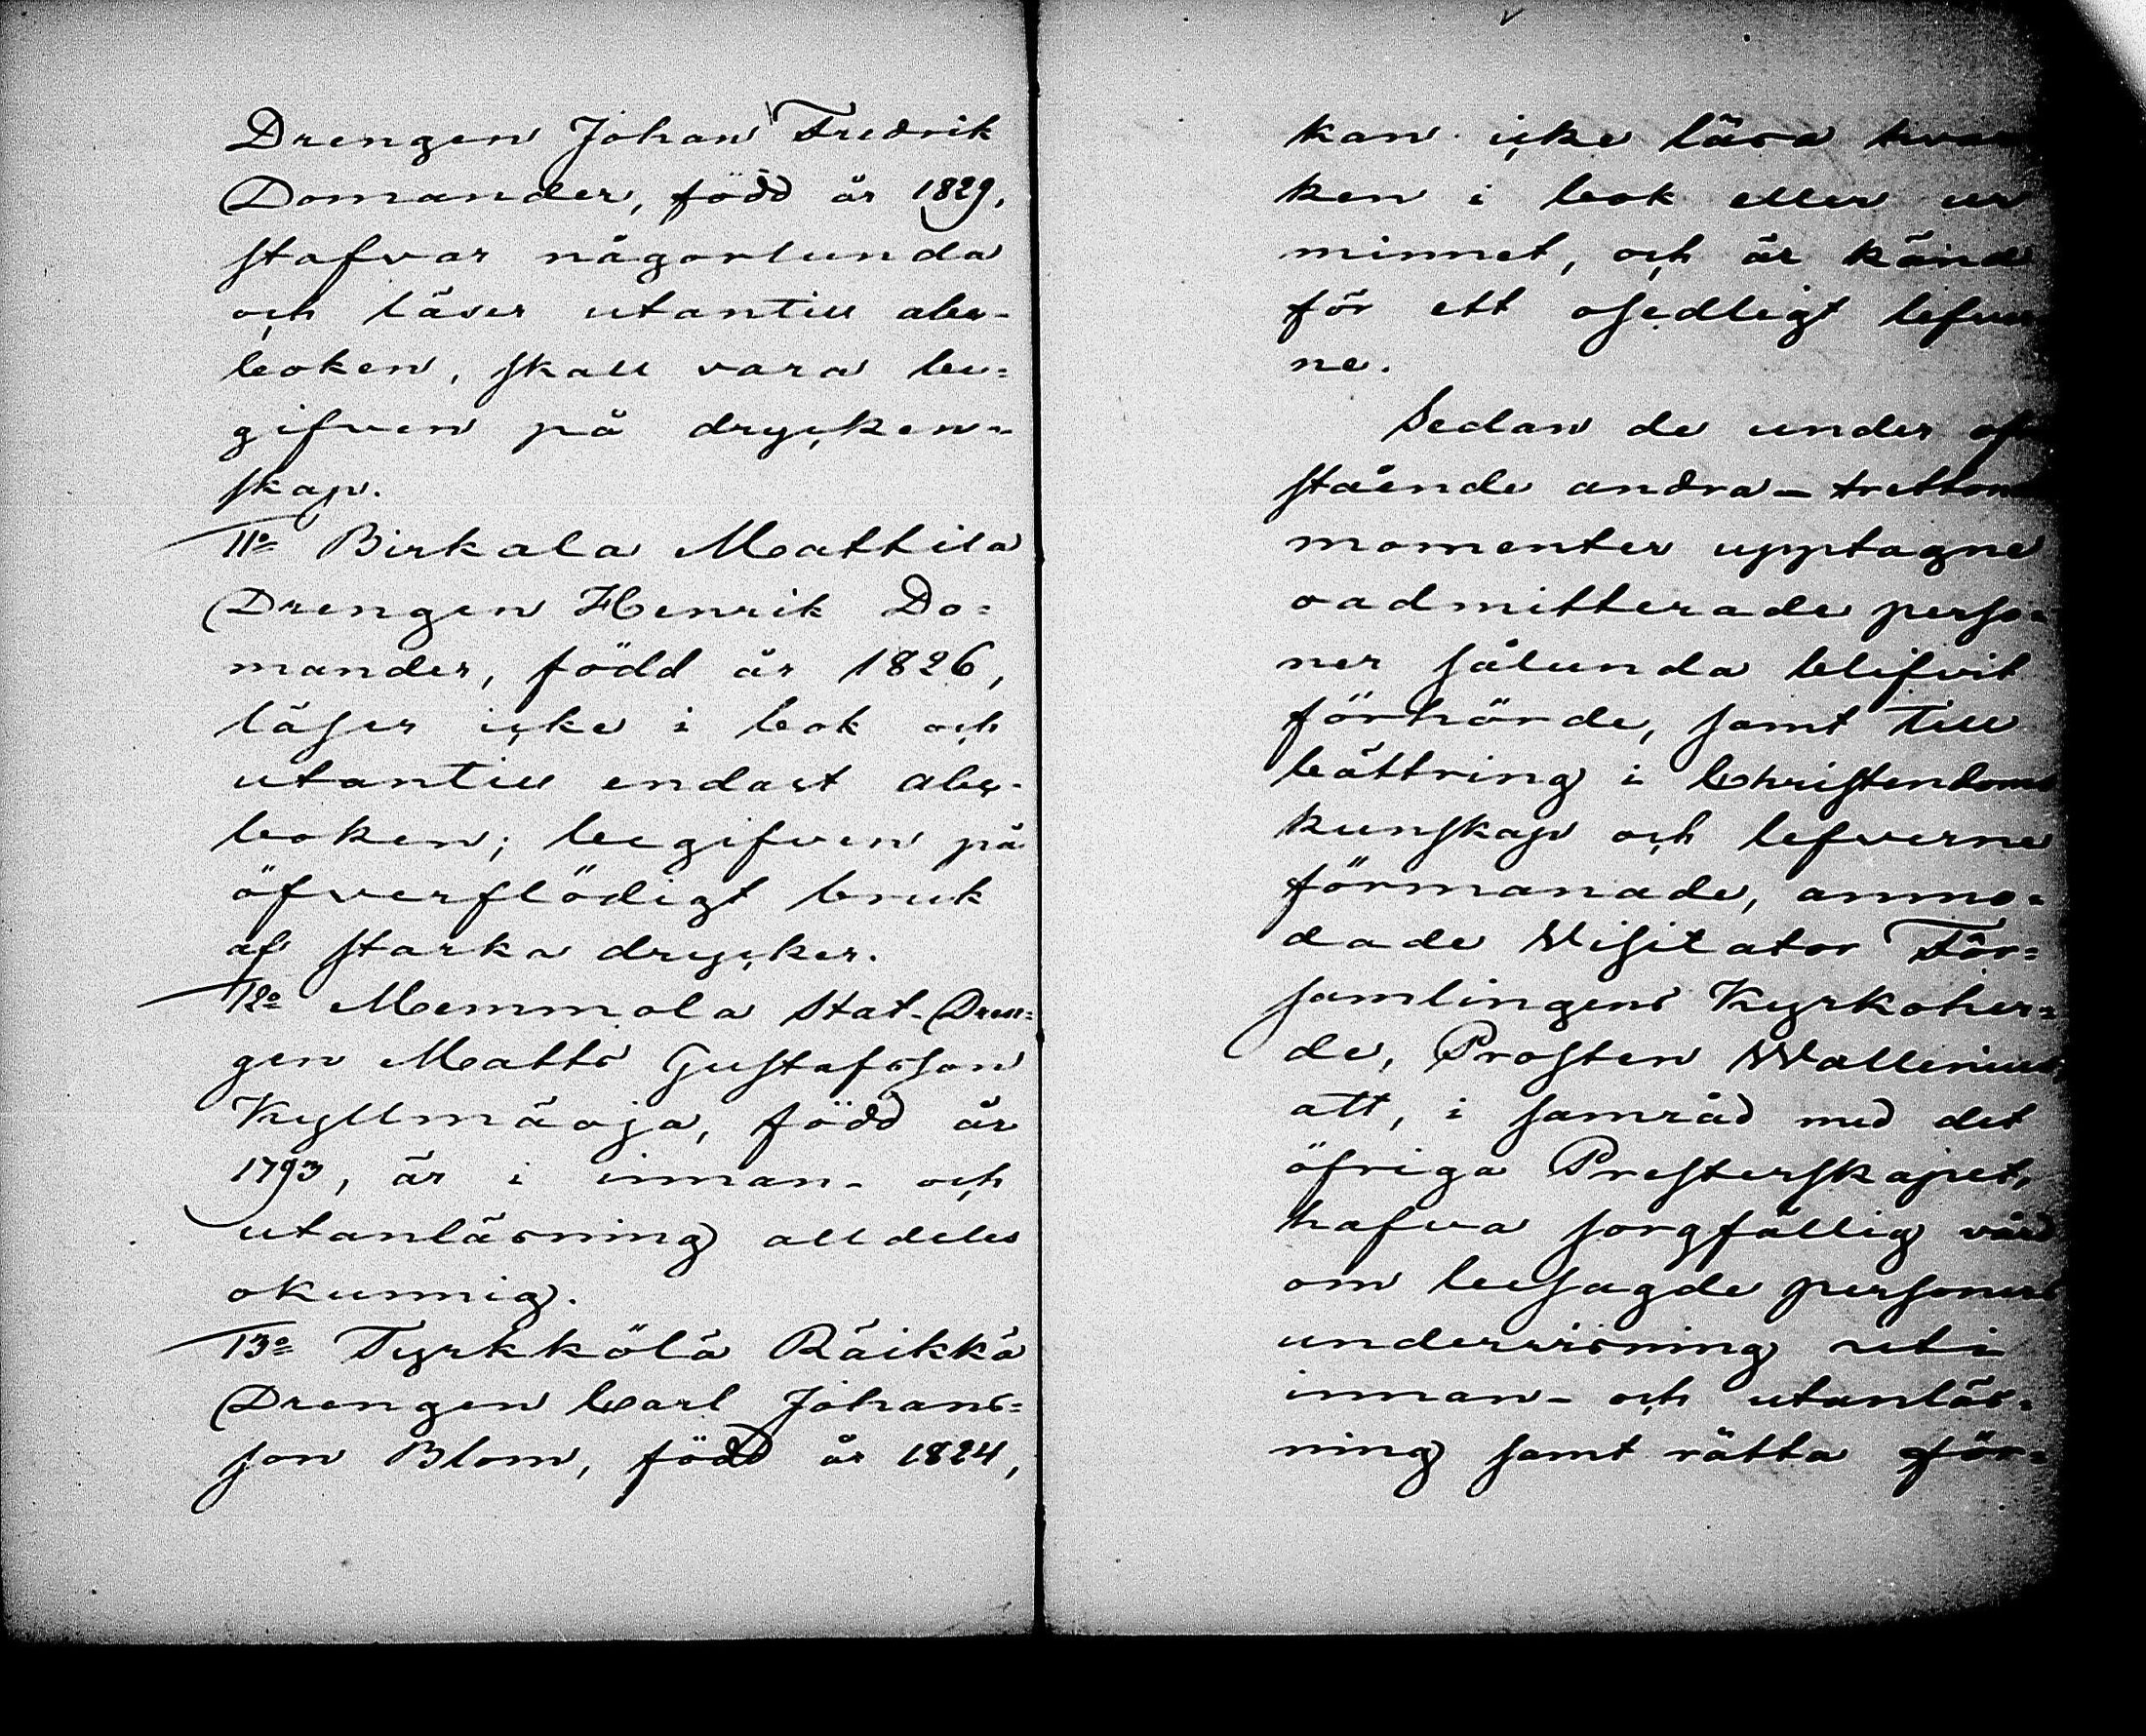 Drengen Johan Fredrik
Domander, född år 1829,
stafvar någorlunda
och läser utantill abc-
boken, skall vara be=
gifven på drycken-
skap.
11º Birkala Mattila
Drengen Henrik Do=
mander, född år 1826,
läser icke i bok och
utantill endast abc-
boken; begifven på
öfverflödigt bruk
af starka drycker.
12º Memmola Stat-Dren=
gen Matts Gustafsson
Kyllmäoja, född år
1793, är i innan- och
utanläsning alldeles
okunnig.
13º Tyrkkölä Räikkä
Drengen Carl Johans=
son Blom, född år 1824,
kan icke läsa hvar
ken i bok eller ur
minnet, och är känd
för ett osedligt lefver
ne.
Sedan de under of
stående andra-trettonde
momenter upptagne
oadmitterade perso=
ner sålunda blifvit
förhörde, samt till
bättring i Christendoms
kunskap och lefverne
förmanade, anmo=
dade Visitator För=
samlingens Kyrkoher=
de, Prosten Wallenius,
att, i samråd med det
öfriga Presterskapet,
hafva sorgfällig vård
om besagde personers
undervisning uti
innan- och utanläs=
ning samt rätta för=